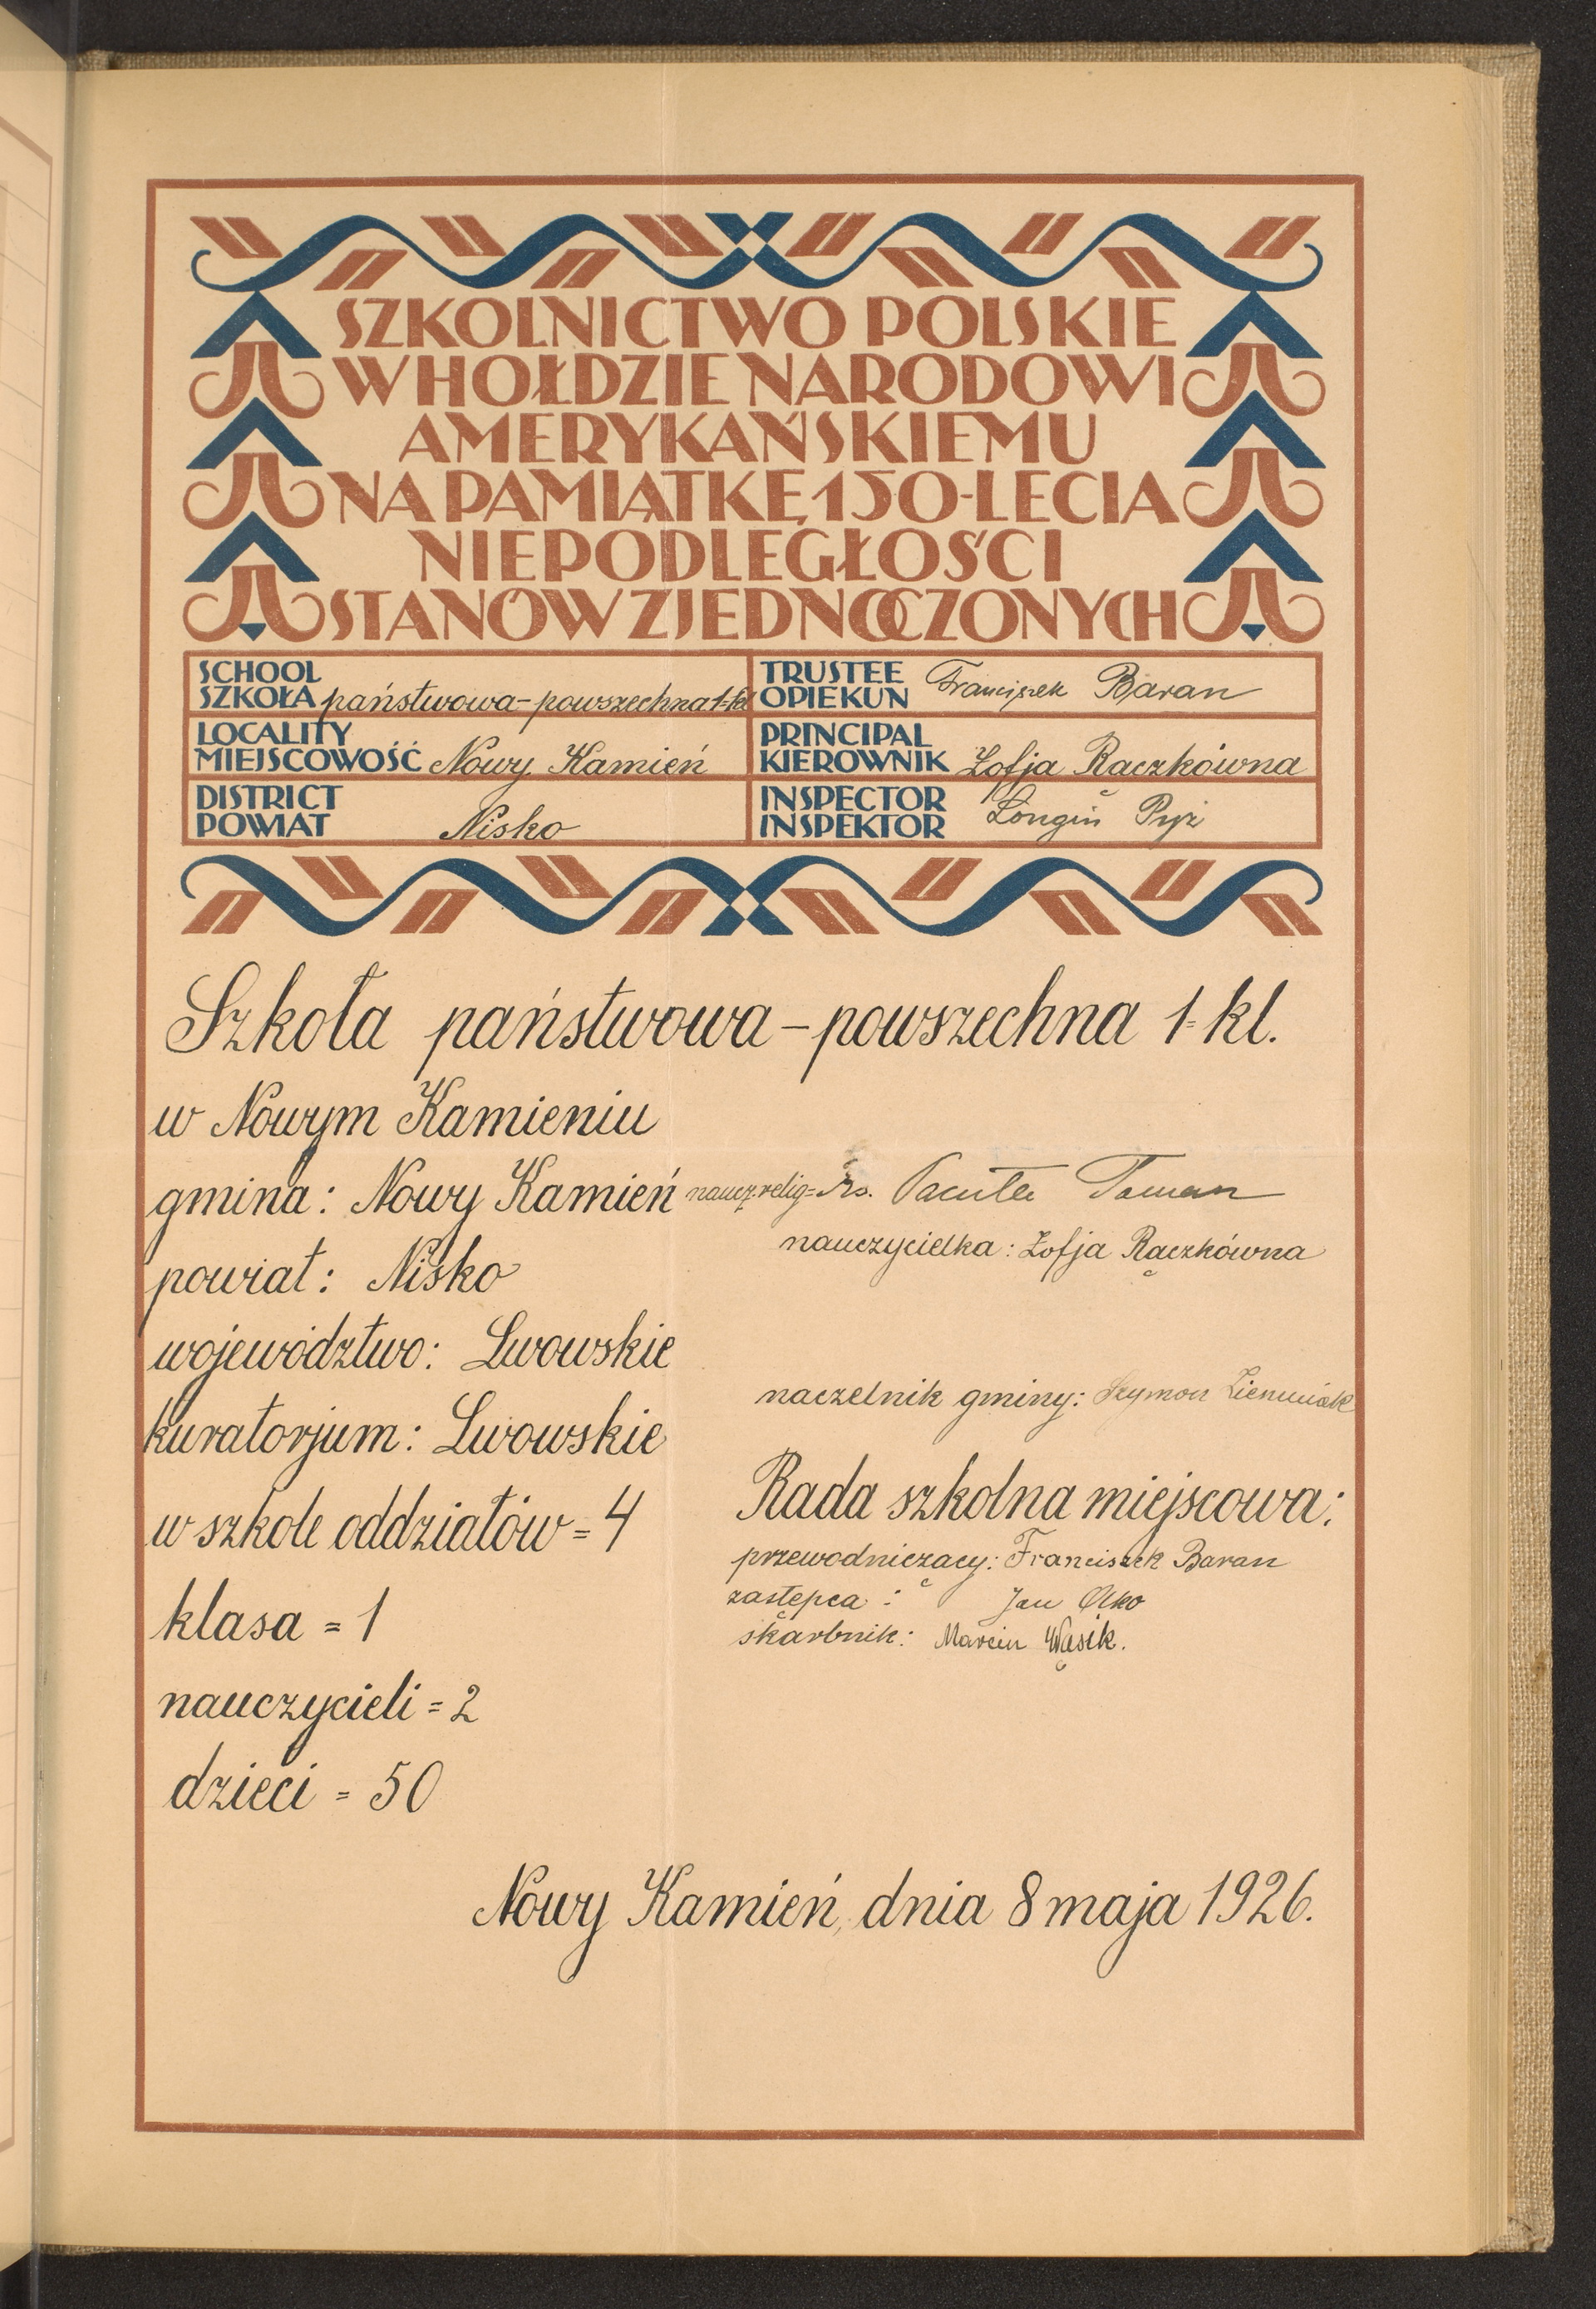 SZKOLNICTWO POLSKIE
W HOŁDZIE NARODOWI
AMERYKAŃSKIEMU
NA PAMIĄTKĘ 150-LECIA
NIEPODLEGŁOŚCI
STANÓW ZJEDNOCZONYCH
SCHOOL
SZKOŁA państwowa-powszechna 1-kl
LOCALITY
MIEJSCOWOŚĆ Nowy Kamień
DISTRICT
POWIAT Nisko
TRUSTEE
OPIEKUN Franciszek Baran
PRINCIPAL
KIEROWNIK Zofja Rączkówna
INSPECTOR
INSPEKTOR Longin Pyż
Szkoła państwowa-powszechna 1-kl.
w Nowym Kamieniu
gmina: Nowy Kamień
powiat: Nisko
województwo: Lwowskie
kuratorjum: Lwowskie
w szkole oddziałów = 4
klasa = 1
nauczycieli = 2
dzieci = 50
naucz. relig = Ks.
nauczycielka: Zofja Rączkówna
naczelnik gminy: Szymon
Rada szkolna miejscowa:
przewodniczący: Franciszek Baran
zastępca: Jan Olko
skarbnik: Marcin Wąsik.
Nowy Kamień, dnia 8 maja 1926.